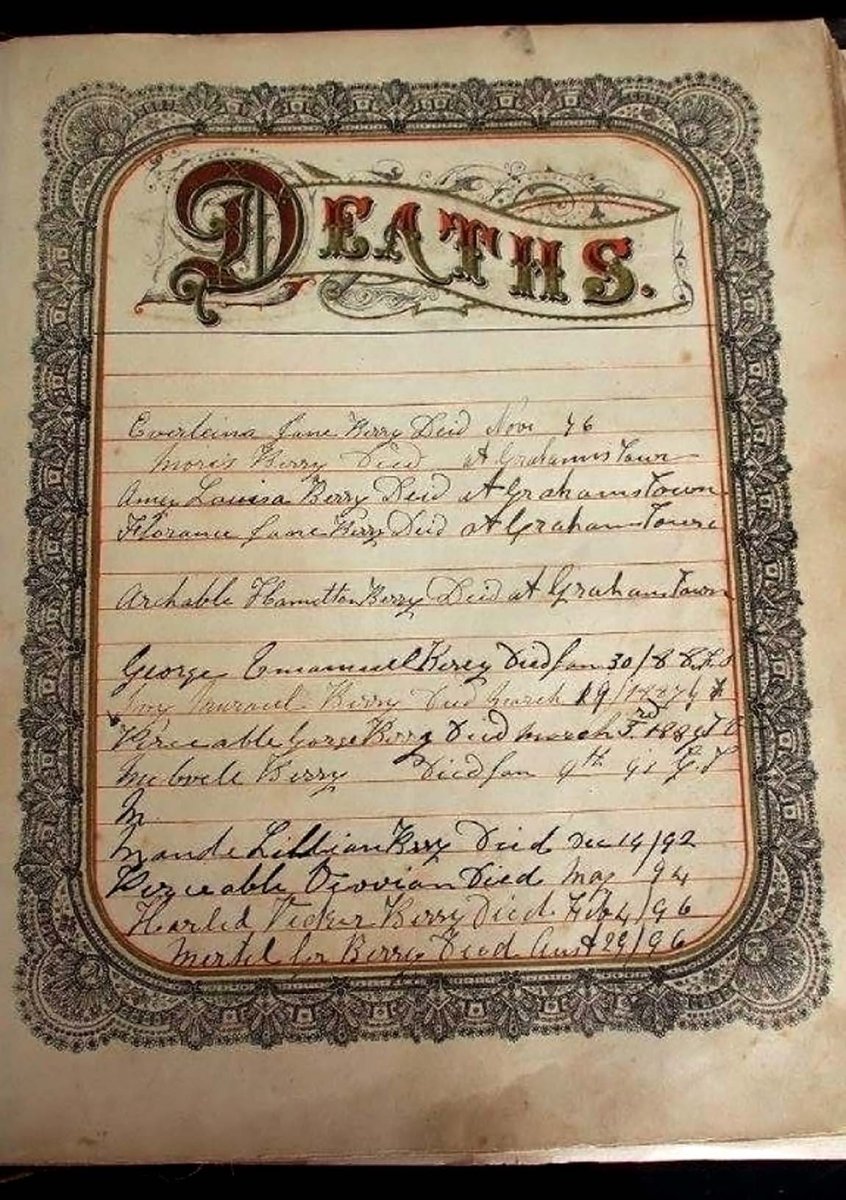 DEATHS.
Everleina Jane Berry Deid Nove 76
Mores Berry Died at Grahamstown
Amey Louisa Berry Deid at Grahamstown
Florance Jane Berry Deid at Grahamstown
Archable Hamelton Berry Deid at Grahamstown
George Emanuel Berry Died Jan 30/8
Berry Died March 19/1887
Perceable Gorge Berry Died March 3rd 1889
Berry Died Jan 9th 91 G.T
M
Maude Lillian Berry Died Dec 14/92
Perceable Died May 94
Harled Berry Died Feb 4/96
Mertel Berry Deid Aust 29/96